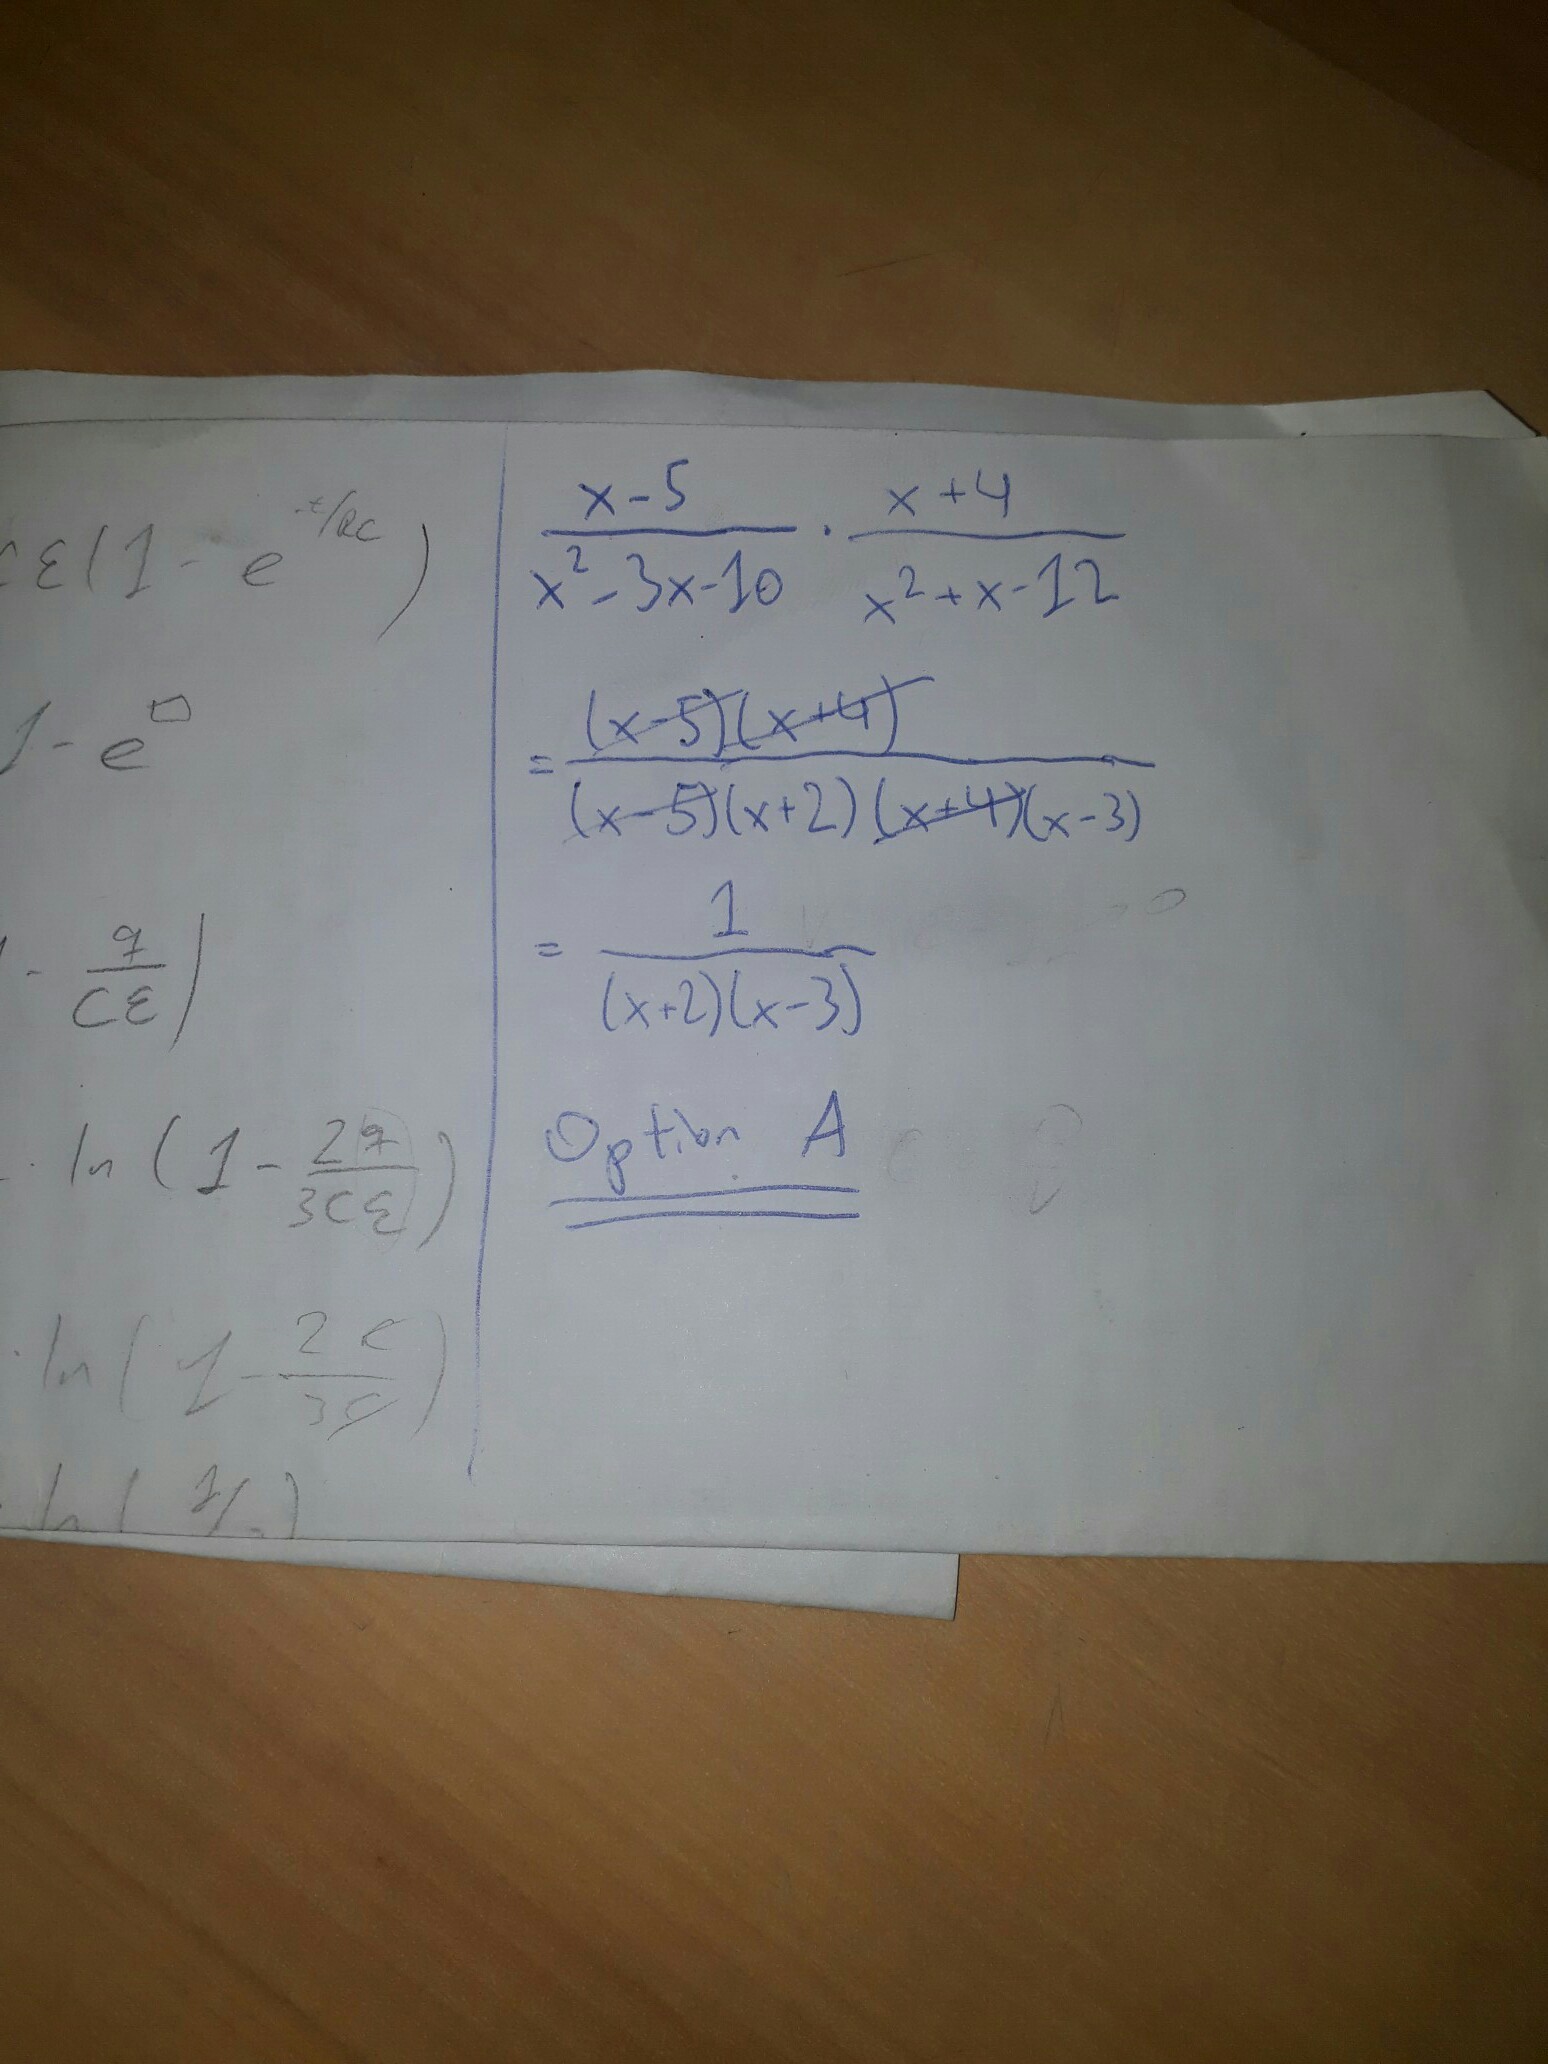 CƐ(1 - e^{-t/RC})
1 - e^□
- q/CƐ)
ln(1 - 2q/3CƐ)
ln(1 - 2ε/3ε)
ln(
(x-5)/(x²-3x-10) · (x+4)/(x²+x-12)
= (x-5)(x+4)/(x-5)(x+2)(x+4)(x-3)
= 1/(x+2)(x-3)
Option A